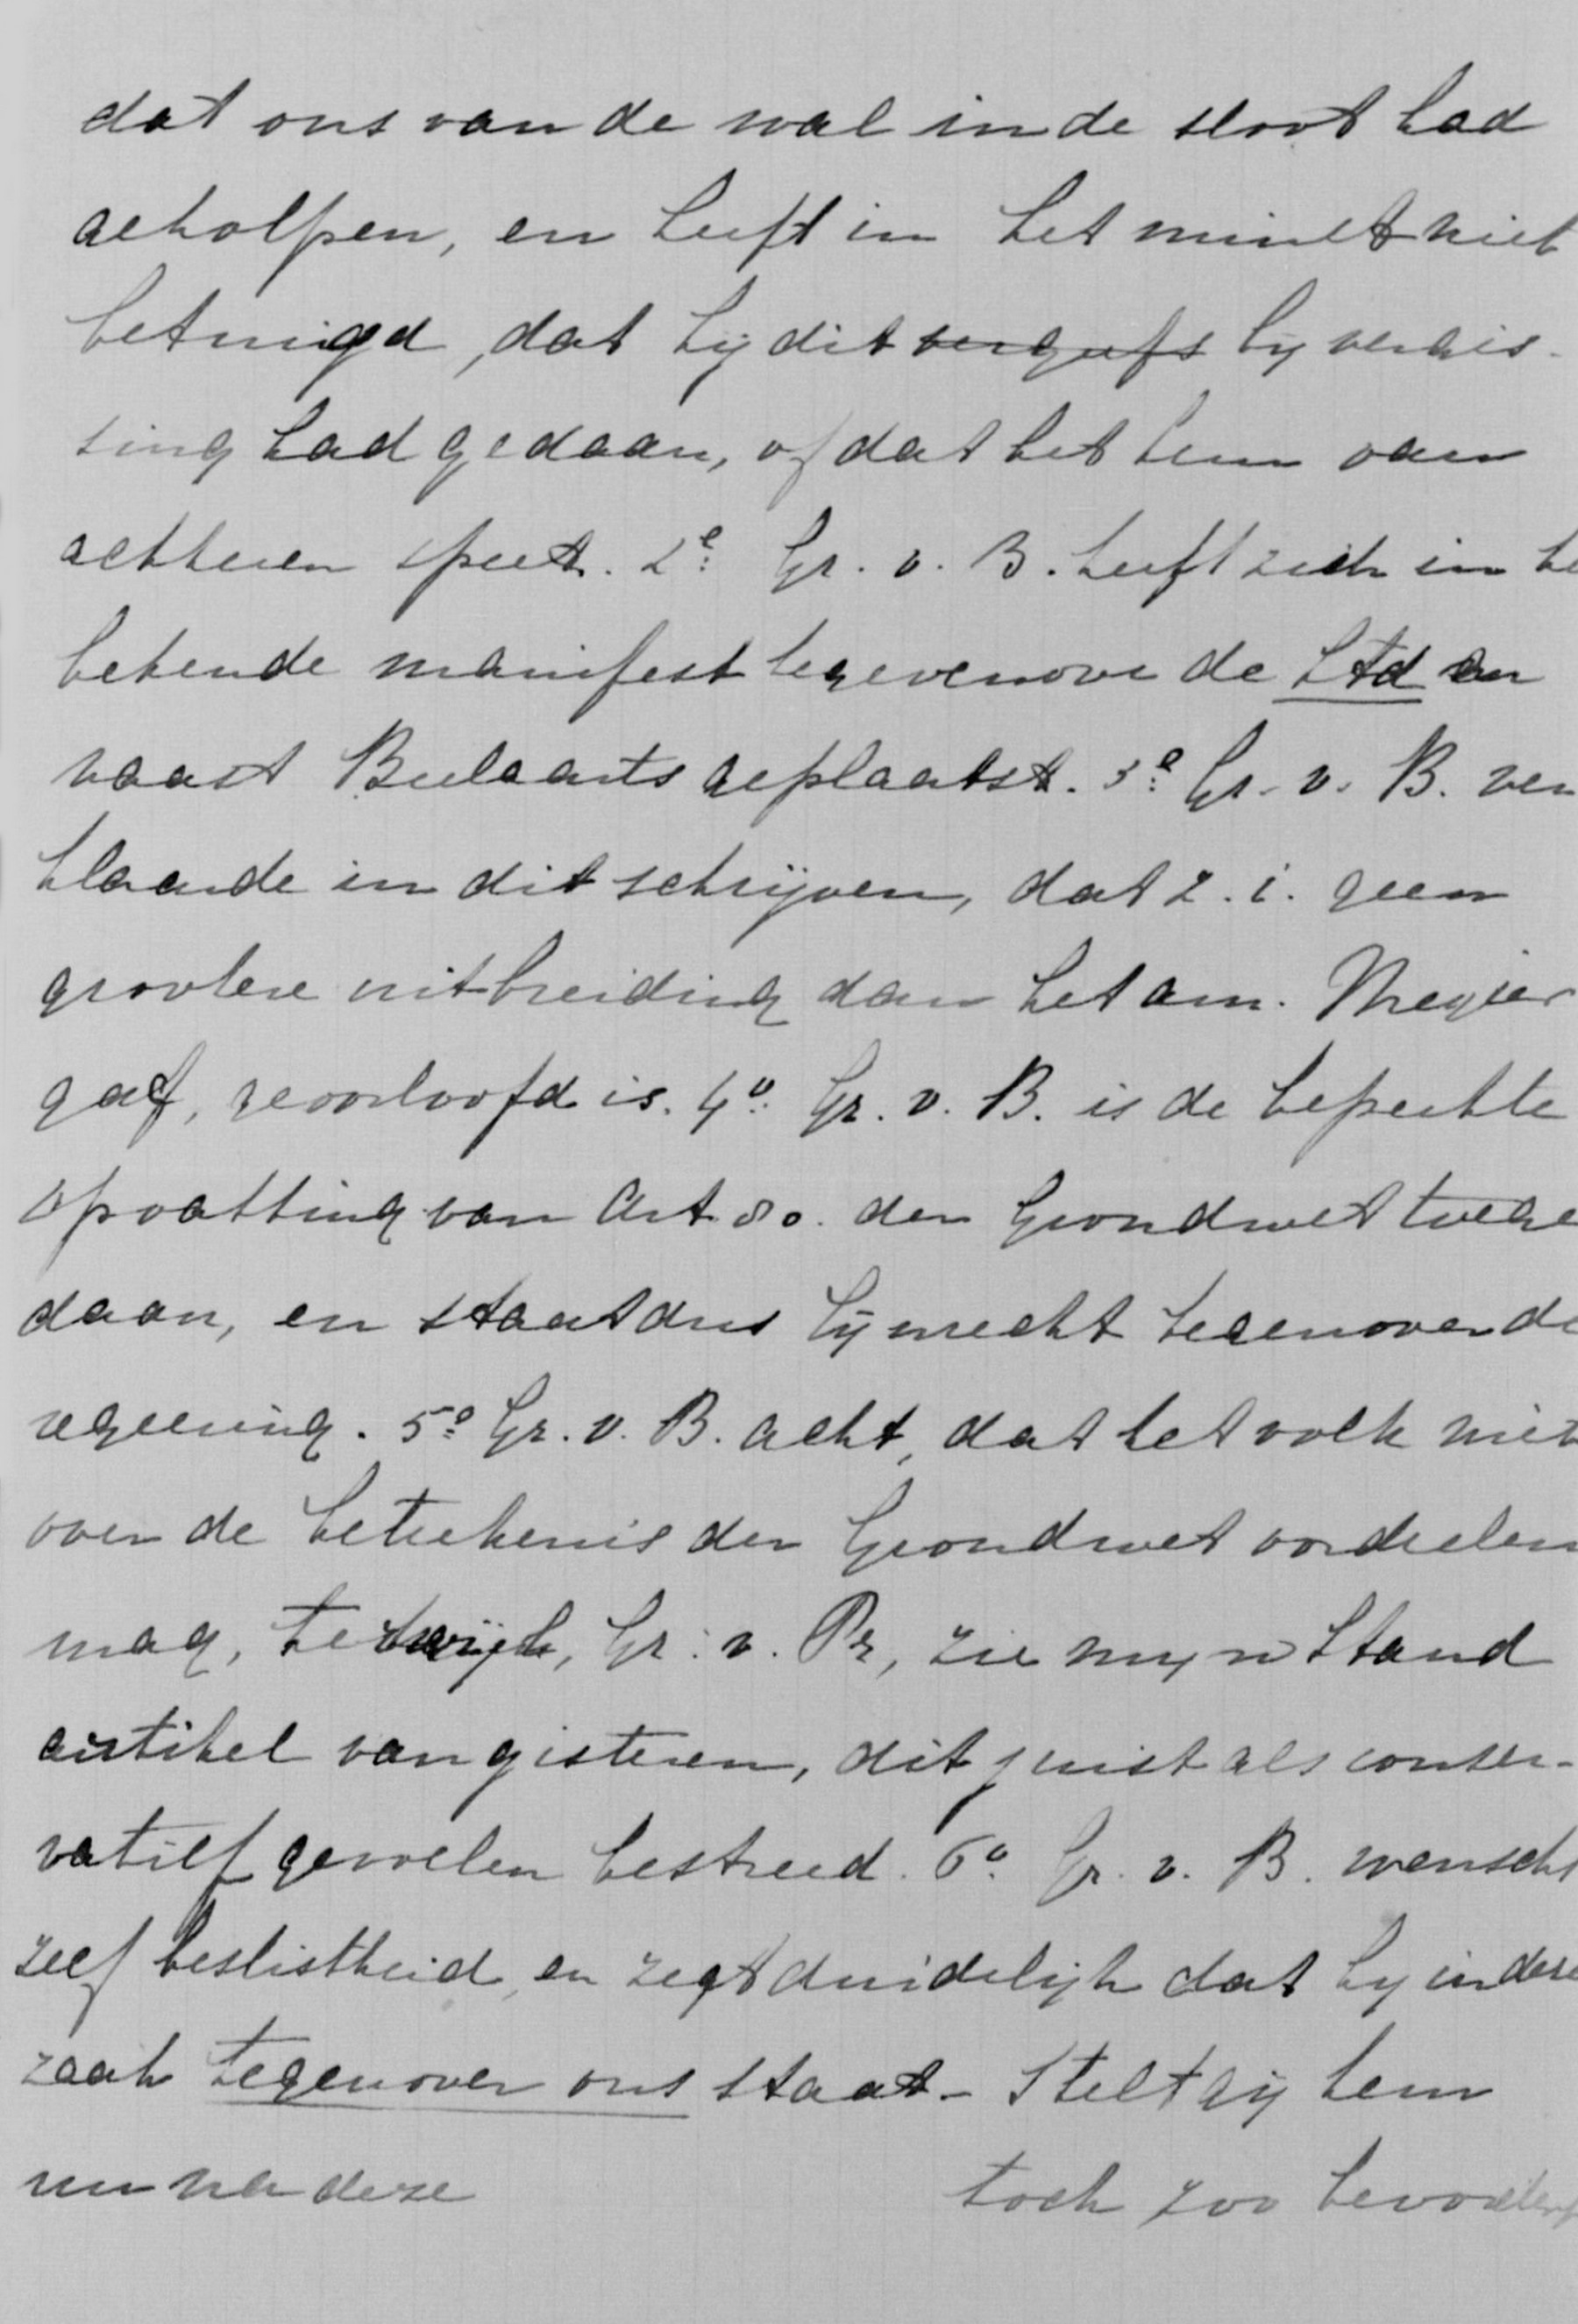 dat ons van de wal in de sloot had
geholpen, en heeft in het minst niet
betuigd, dat hij dit vergeefs bij vergis-
sing had gedaan, of dat het hem van
achteren speet. 2e: Gr. v. B. heeft zich in he
bekende manifest tegenover de Std en
naast Beelaerts geplaatst. 3e: Gr. v. B. ver
klaarde in dit schrijven, dat z. i. geen
grootere uitbreiding dan het am. Meyier
gaf, geoorloofd is. 4o: Gr. v. B. is de beperkte
opvatting van Art. 80. der Grondwet toege
daan, en staat dus lijnrecht tegenover de
regeering. 5o: Gr. v. B. acht, dat het volk niet
over de beteekenis der Grondwet oordeelen
mag, terwijl, Gr. v. Pr, zie mijn Stand
artikel van gisteren, dit juist als conser-
vatief gevoelen bestreed. 6o: Gr. v. B. wenscht
zelf beslistheid, en zegt duidelijk dat hij in deze
zaak tegenover ons staat. - Stelt gij hem
nu na deze toch zoo